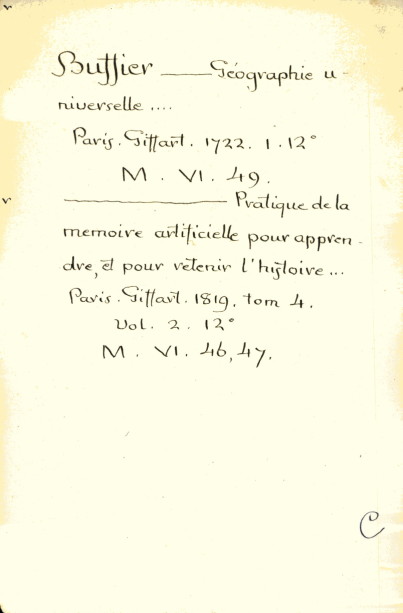 Buffier —— Géographie u-
niverselle ....
Paris. Giffart. 1722. 1. 12°
M. VI. 49.
———— Pratique de la
memoire artificielle pour appren-
dre, et pour retenir l'histoire ...
Paris. Giffart. 1819. tom 4.
Vol. 2. 12°
M. VI. 46, 47.
C